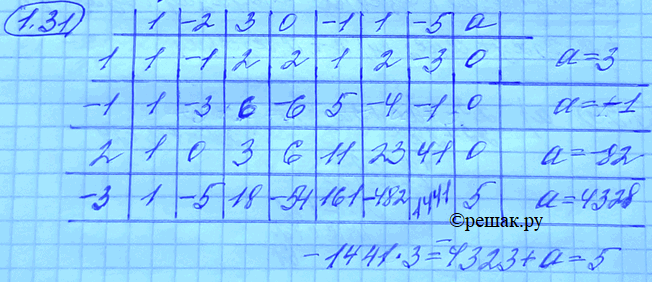 1.31 1 -2 3 0 -1 1 -5 a
1 1 -1 2 2 1 2 -3 0 a=3
-1 1 -3 6 -6 5 -4 -1 0 a=-1
2 1 0 3 6 11 23 41 0 a=-82
-3 1 -5 18 -54 161 -482 1441 5 a=4328
©решак.ру
-1441·3=-4323+a=5